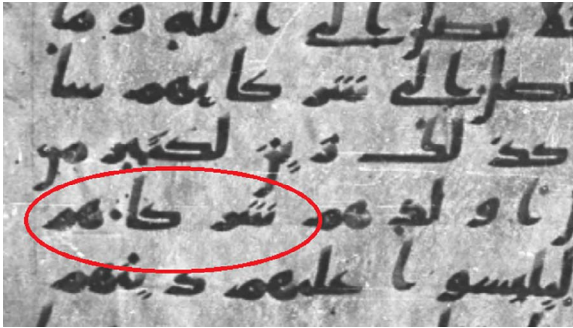 فلا يصل ا لى ا لله و ما
يصل ا لى شر كا يهم سا
كذ لك ز ين لكثير من
ا و لد هم شر كا يهم
ليلبسو ا عليهم د ينهم